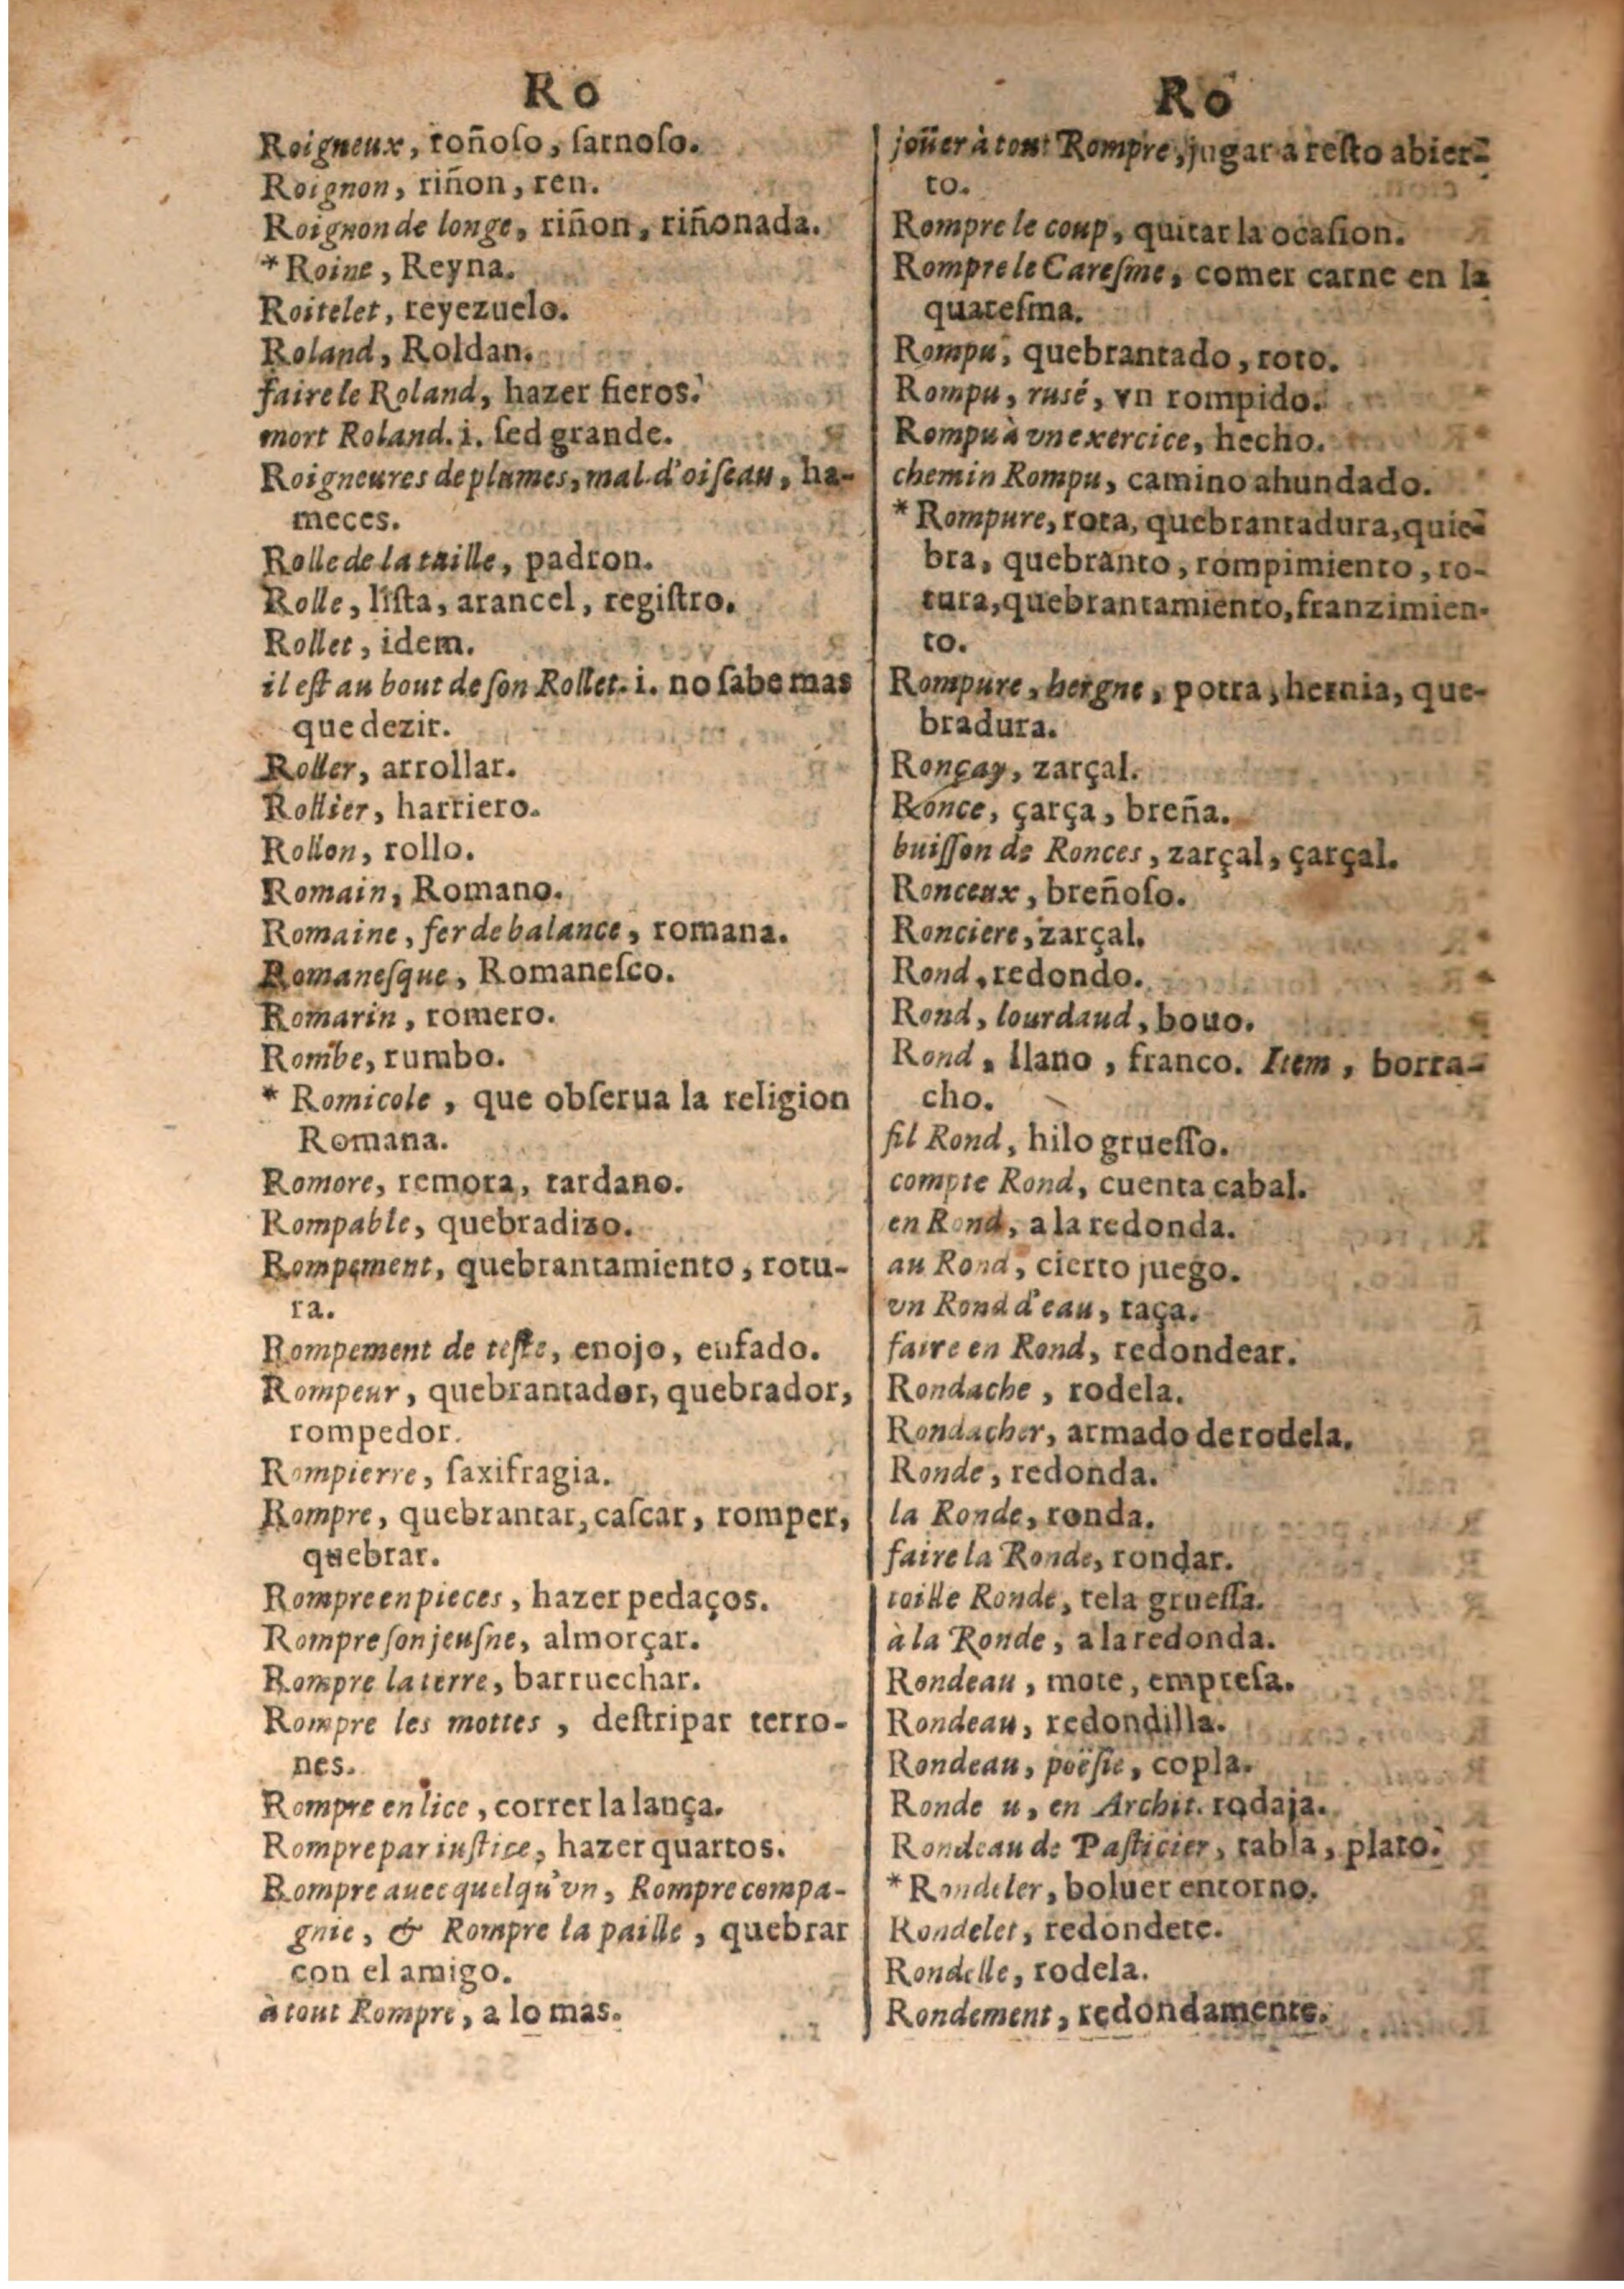 Ro
Roigneux, roñoſo, ſarnoſo.
Roignon, riñon, ren.
Roignon de longe, riñon, riñonada.
* Roine, Reyna.
Roitelet, reyezuelo.
Roland, Roldan.
faire le Roland, hazer fieros.
mort Roland. i. ſed grande.
Roigneures de plumes, mal d'oiſeau, ha-
meces.
Rolle de la taille, padron.
Rolle, liſta, arancel, regiſtro.
Rollet, idem.
il eſt au bout de ſon Rollet. i. no ſabe mas
que dezir.
Roller, arrollar.
Rollier, harriero.
Rollon, rollo.
Romain, Romano.
Romaine, fer de balance, romana.
Romaneſque, Romaneſco.
Romarin, romero.
Rombe, rumbo.
* Romicole, que obſerua la religion
Romana.
Romore, remora, tardano.
Rompable, quebradizo.
Rompement, quebrantamiento, rotu-
ra.
Rompement de teſte, enojo, enfado.
Rompeur, quebrantador, quebrador,
rompedor.
Rompierre, ſaxifragia.
Rompre, quebrantar, caſcar, romper,
quebrar.
Rompre en pieces, hazer pedaços.
Rompre ſon jeuſne, almorçar.
Rompre la terre, barruechar.
Rompre les mottes, deſtripar terro-
nes.
Rompre en lice, correr la lança.
Rompre par iuſtice, hazer quartos.
Rompre auec quelqu'vn, Rompre compa-
gnie, & Rompre la paille, quebrar
con el amigo.
à tout Rompre, a lo mas.
Ro
joüer à tout Rompre, jugar a reſto abier-
to.
Rompre le coup, quitar la ocaſion.
Rompre le Careſme, comer carne en la
quareſma.
Rompu, quebrantado, roto.
Rompu, rusé, vn rompido.
Rompu à vn exercice, hecho.
chemin Rompu, camino ahundado.
* Rompure, rota, quebrantadura, quie-
bra, quebranto, rompimiento, ro-
tura, quebrantamiento, franzimien-
to.
Rompure, hergne, potra, hernia, que-
bradura.
Ronçay, zarçal.
Ronce, çarça, breña.
buiſſon de Ronces, zarçal, çarçal.
Ronceux, breñoſo.
Ronciere, zarçal.
Rond, redondo.
Rond, lourdaud, bouo.
Rond, llano, franco. Item, borra-
cho.
fil Rond, hilo grueſſo.
compte Rond, cuenta cabal.
en Rond, a la redonda.
au Rond, cierto juego.
vn Rond d'eau, taça.
faire en Rond, redondear.
Rondache, rodela.
Rondacher, armado de rodela.
Ronde, redonda.
la Ronde, ronda.
faire la Ronde, rondar.
toille Ronde, tela grueſſa.
à la Ronde, a la redonda.
Rondeau, mote, empreſa.
Rondeau, redondilla.
Rondeau, poëſie, copla.
Ronde u, en Archit. rodaja.
Rondeau de Paſticier, tabla, plato.
* Rondeler, boluer entorno.
Rondelet, redondete.
Rondelle, rodela.
Rondement, redondamente.